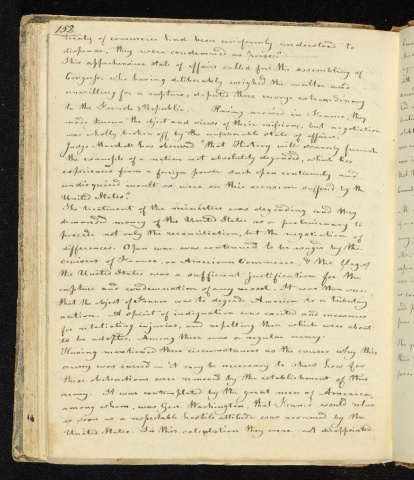 158
treaty of commerce had been uniformly understood to
dispense, they were condemned as prize."
This apprehensive state of affairs called for the assembling of
Congress who having deliberately weighed the matter and
unwilling for a rupture, deputed three envoys extraordinary
to the French Republic. Having arrived in France, they
made known the object and views of their mission, but negotiation
was wholly broken off by the unfavorable state of affairs.
Judge Marshall has observed "that History will scarcely furnish
the example of a nation not absolutely degraded, which has
experienced from a foreign power such open contumely and
undisguised insult as were on this occasion suffered by the
United States."
The treatment of the ministers was degrading and they
demanded money of the United States as a preliminary to
precede not only the reconciliation, but the negotiation of
differences. Open war was continued to be waged by the
cruisers of France, on American Commerce, & the flag of
the United States was a sufficient justification for the
capture and condemnation of any vessel. It was then
that the object of France was to degrade America to a tributary
nation. A spirit of indignation was excited and measures
for retaliating injuries, and repelling them which were about
to be adopted, Among these was a regular army.
Having mentioned these circumstances as the causes why this
army was raised - it may be necessary to shew how far
these obstructions were removed by the establishment of this
army. It was contemplated by the great men of America,
among whom, was Gen. Washington, that France would relax
as soon as a respectable hostile attitude was assumed by the
United States. In this calculation they were not disappointed